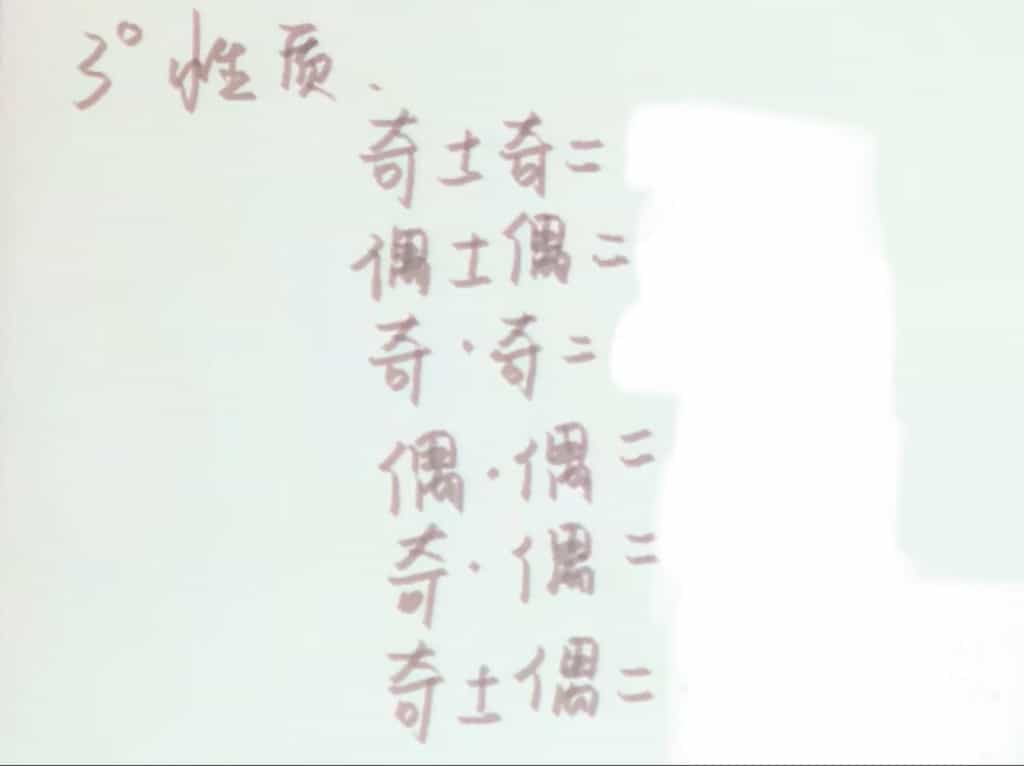 3° 性质.
奇±奇=
偶±偶=
奇·奇=
偶·偶=
奇·偶=
奇±偶=